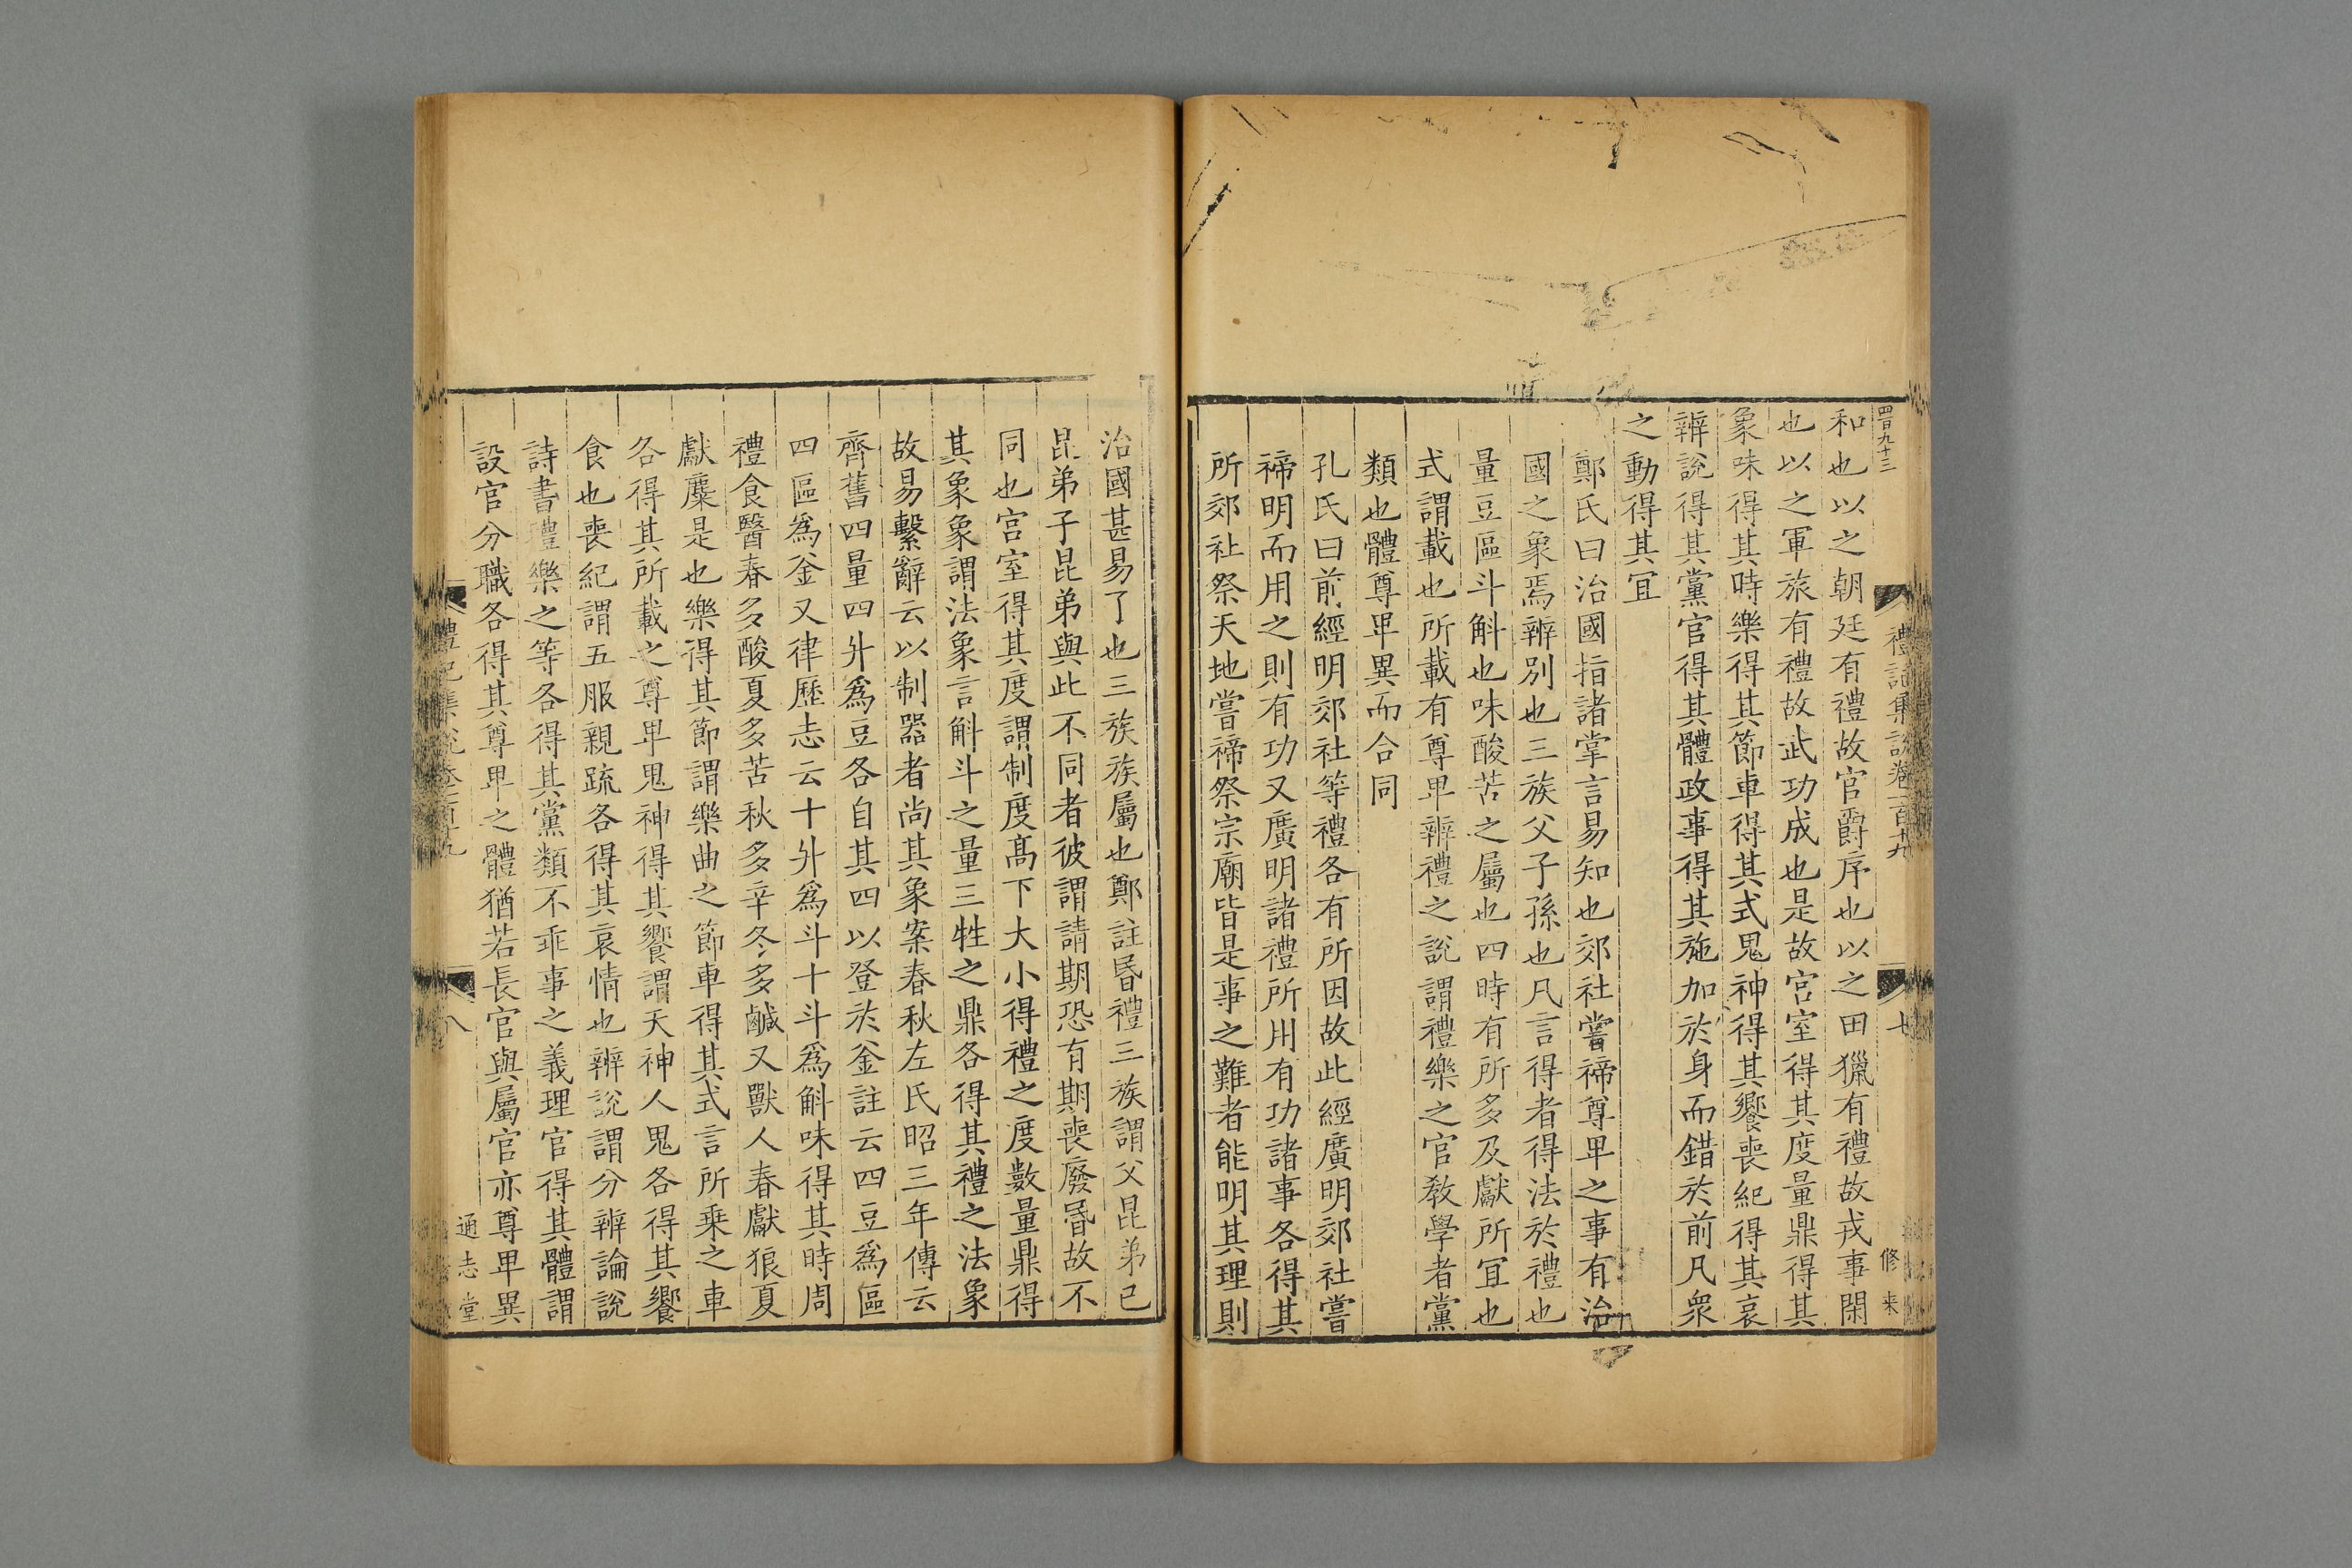 四百九十三
禮記集說卷一百十九
七
修
来
和也以之朝廷有禮故官爵序也以之田獵有禮故戎事閑
也以之軍旅有禮故武功成也是故宫室得其度量鼎得其
象味得其時樂得其節車得其式鬼神得其饗喪紀得其哀
辨說得其黨官得其體政事得其施加於身而錯於前凡衆
之動得其冝
鄭氏曰治國指諸掌言易知也郊社嘗禘尊卑之事有治
國之象焉辨别也三族父子孫也凡言得者得法於禮也
量豆區斗斛也味酸苦之屬也四時有所多及獻所冝也
式謂載也所載有尊卑辨禮之說謂禮樂之官教學者黨
類也體尊卑異而合同
孔氏曰前經明郊社等禮各有所因故此經廣明郊社嘗
禘明而用之則有功又廣明諸禮所用有功諸事各得其
所郊社祭天地嘗禘祭宗廟皆是事之難者能明其理則
治國甚易了也三族族屬也鄭註昬禮三族謂父昆弟已
昆弟子昆弟與此不同者彼謂請期恐有期喪廢昬故不
同也宫室得其度謂制度髙下大小得禮之度數量鼎得
其象象謂法象言斛斗之量三牲之鼎各得其禮之法象
故易繫辭云以制器者尚其象案春秋左氏昭三年傳云
齊舊四量四升爲豆各自其四以登於釜註云四豆爲區
四區爲釜又律歷志云十升爲斗十斗爲斛味得其時周
禮食醫春多酸夏多苦秋多辛冬多鹹又獸人春獻狼夏
獻麋是也樂得其節謂樂曲之節車得其式言所乗之車
各得其所載之尊卑鬼神得其饗謂天神人鬼各得其饗
食也喪紀謂五服親踈各得其哀情也辨說謂分辨論說
詩書禮樂之等各得其黨類不乖事之義理官得其體謂
設官分職各得其尊卑之體猶若長官與屬官亦尊卑異
禮記集說卷一百十九
八
通志堂